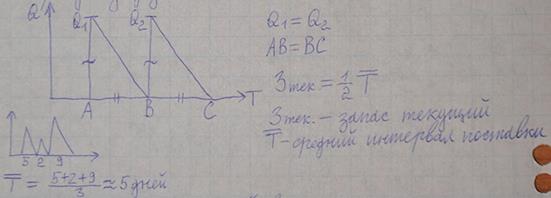 Q
Q₁ Q₂
A B C T
Q₁ = Q₂
AB = BC
Зтек = 1/2 T̿
Зтек. – запас текущий
T̿ - средний интервал поставки
5 2 9
T̿ = (5+2+9)/3 ≈ 5 дней